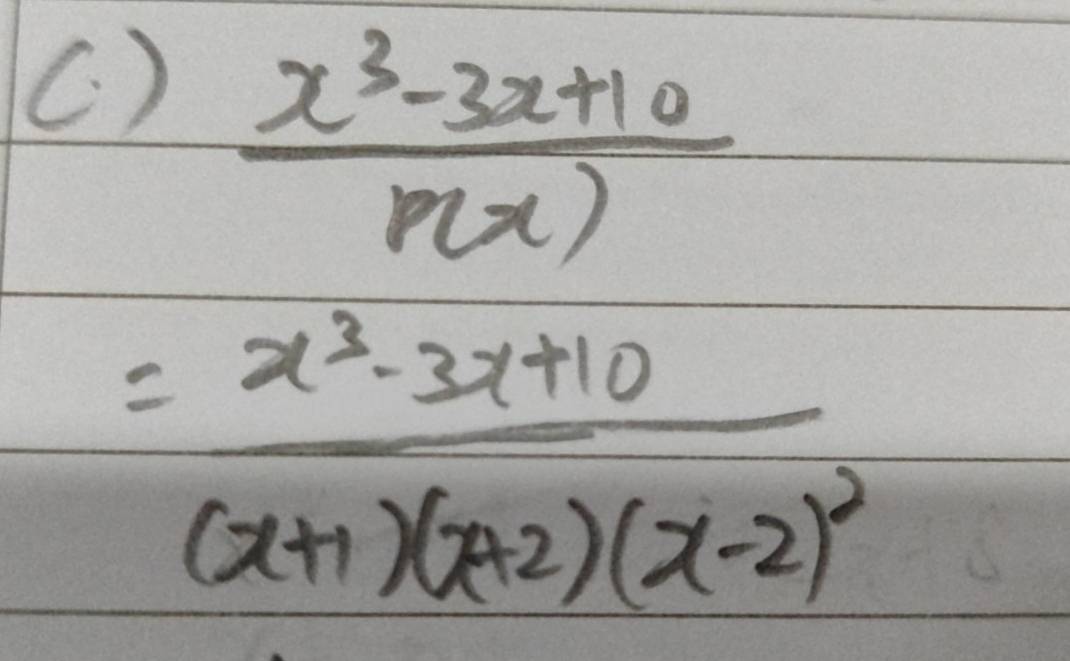 C.) x³-3x+10
P(x)
= x³-3x+10
(x+1)(x+2)(x-2)²